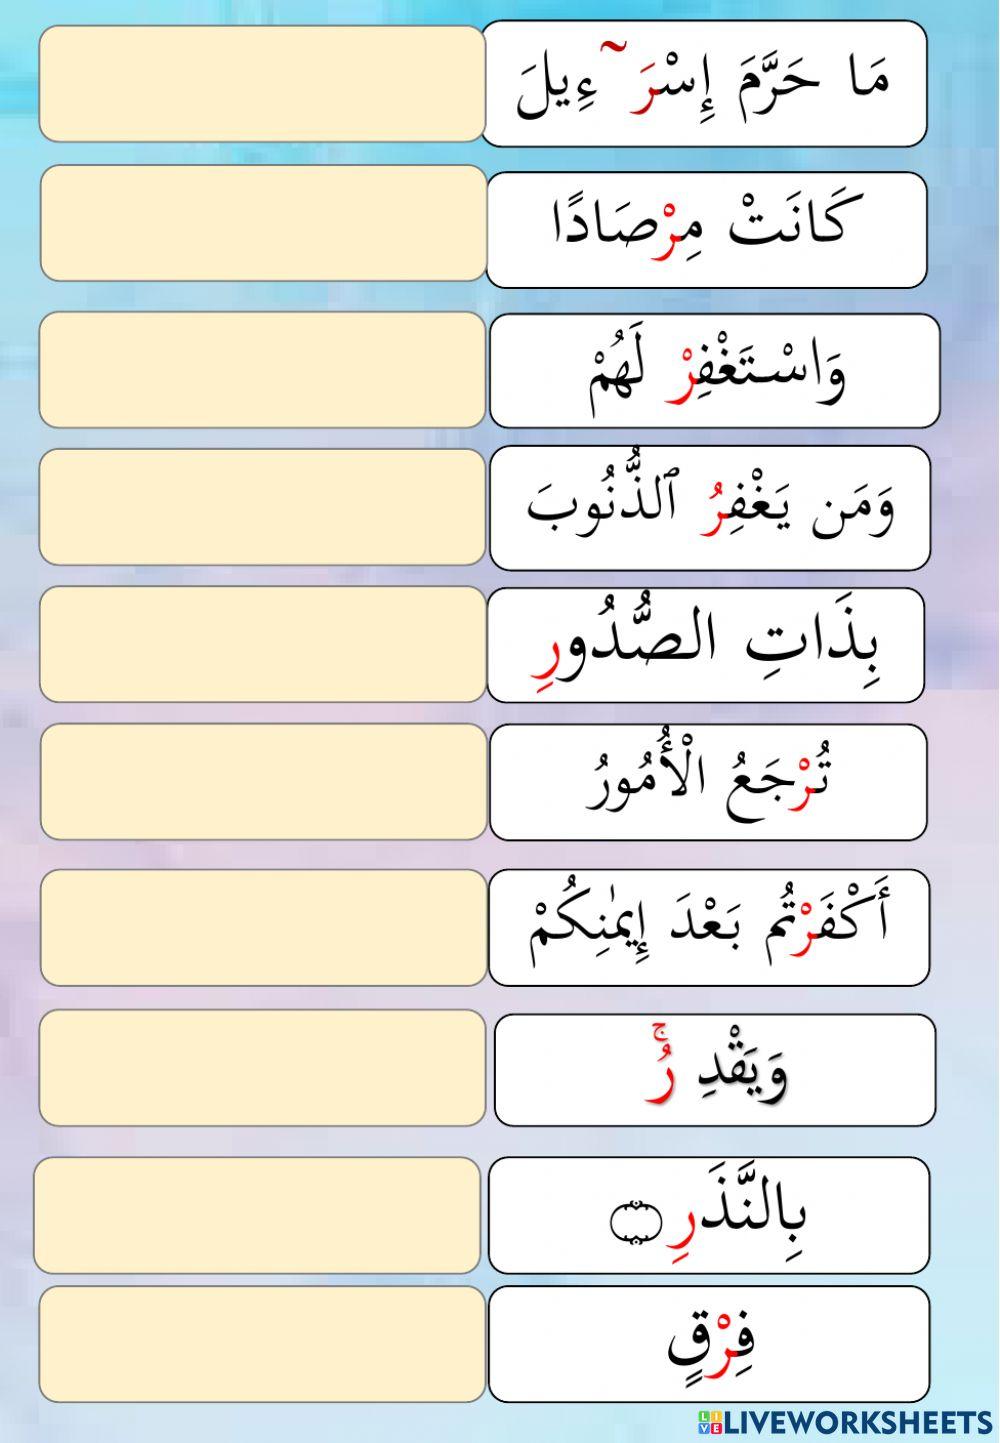 مَا حَرَّمَ إِسْرَ ٓءِيلَ
كَانَتْ مِرْصَادًا
وَاسْتَغْفِرْ لَهُمْ
وَمَن يَغْفِرُ ٱلذُّنُوبَ
بِذَاتِ الصُّدُورِ
تُرْجَعُ الْأُمُورُ
أَكْفَرْتُم بَعْدَ إِيمَٰنِكُمْ
وَيَقْدِ رُۚ
بِالنَّذَرِ ۝
فِرْقٍ
LIVEWORKSHEETS